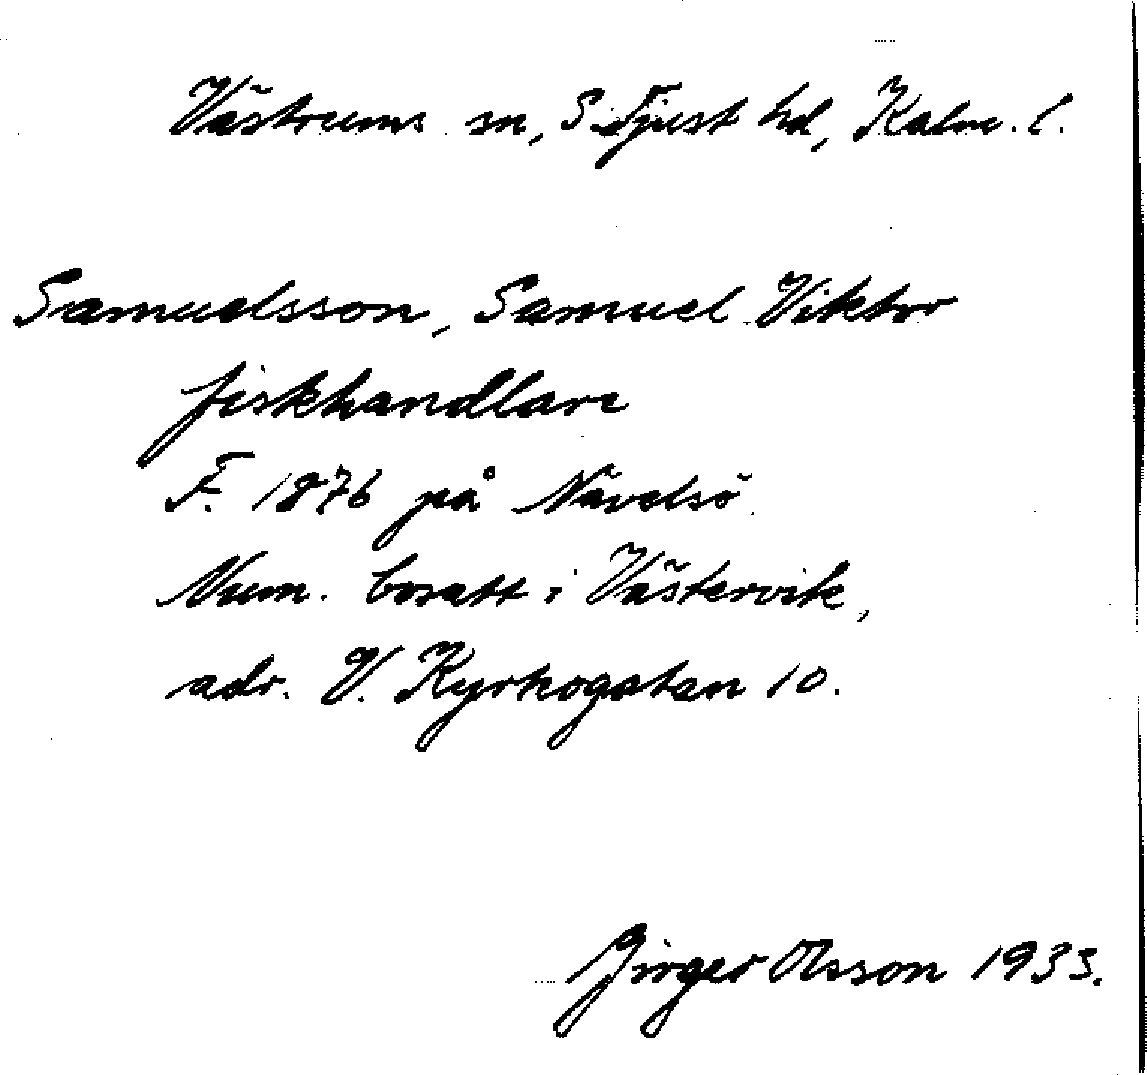 Västrums sn, S. Tjust hd, Kalm. l.
Samuelsson, Samuel Viktor
fiskhandlare
F. 1876 på Nävelsö.
Num. bosatt i Västervik,
adr. V. Kyrkogatan 10.
Birger Olsson 1933.